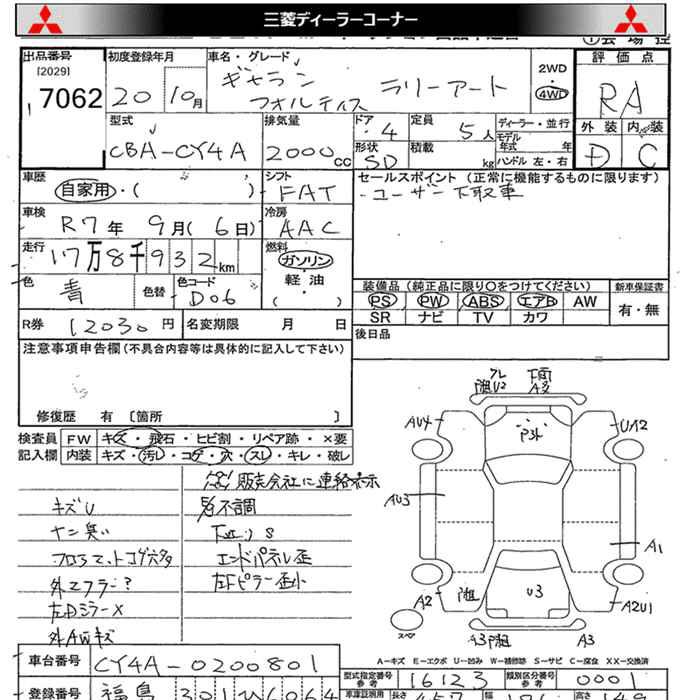 三菱ディーラーコーナー
出品番号
[2029]
7062
初度登録年月
20 10月
車名・グレード
ギャラン
フォルティス
ラリーアート
2WD
・
4WD
評価点
RA
外装 内装
D C
型式
CBA-CY4A
排気量
2000cc
ドア
4
定員
5人
形状
SD
積載
kg
ディーラー・並行
モデル
年式 年
ハンドル 左・右
車歴
自家用・( )
シフト
FAT
セールスポイント (正常に機能するものに限ります)
・ユーザー下取車
車検
R7年 9月(6日)
冷房
AAC
走行
17万8千932km
燃料
ガソリン
軽油
( )
色
青
色替
色コード
D06
装備品 (純正品に限り○をつけてください)
PS PW ABS エアB AW
SR ナビ TV カワ
新車保証書
有・無
R券 12030円
名変期限 月 日
後日品
注意事項申告欄(不具合内容等は具体的に記入して下さい)
修復歴 有 [箇所 ]
検査員
記入欄
FW キズ・飛石・ヒビ割・リペア跡・×要
内装 キズ・汚し・コゲ・穴・スレ・キレ・破し
販売会社に連絡表示
キズU
ヤニ臭い
フロアマットコゲ穴多
外マフラー?
左Dミラー×
外AWキズ
不調
下廻りS
エンドパネル歪
左Fピラー歪小
下面
A多
AU4
UA2
AU3
A1
A2
U3
A2U1
A3
A3
スペア
A-キズ E-エクボ U-凹み W-補修跡 S-サビ C-腐食 XX-交換済
車台番号
CY4A-0200801
型式指定番号
参考
16123
類別区分番号
参考
0001
登録番号
福島 301
車庫証明用
参考
長さ
高さ